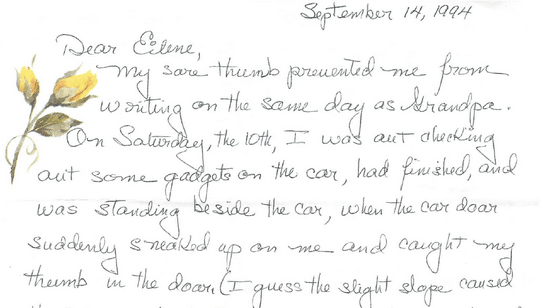 September 14, 1994
Dear Eilene,
My sore thumb prevented me from
writing on the same day as Grandpa.
On Saturday, the 10th, I was out checking
out some gadgets on the car, had finished, and
was standing beside the car, when the car door
suddenly sneaked up on me and caught my
thumb in the door. (I guess the slight slope caused